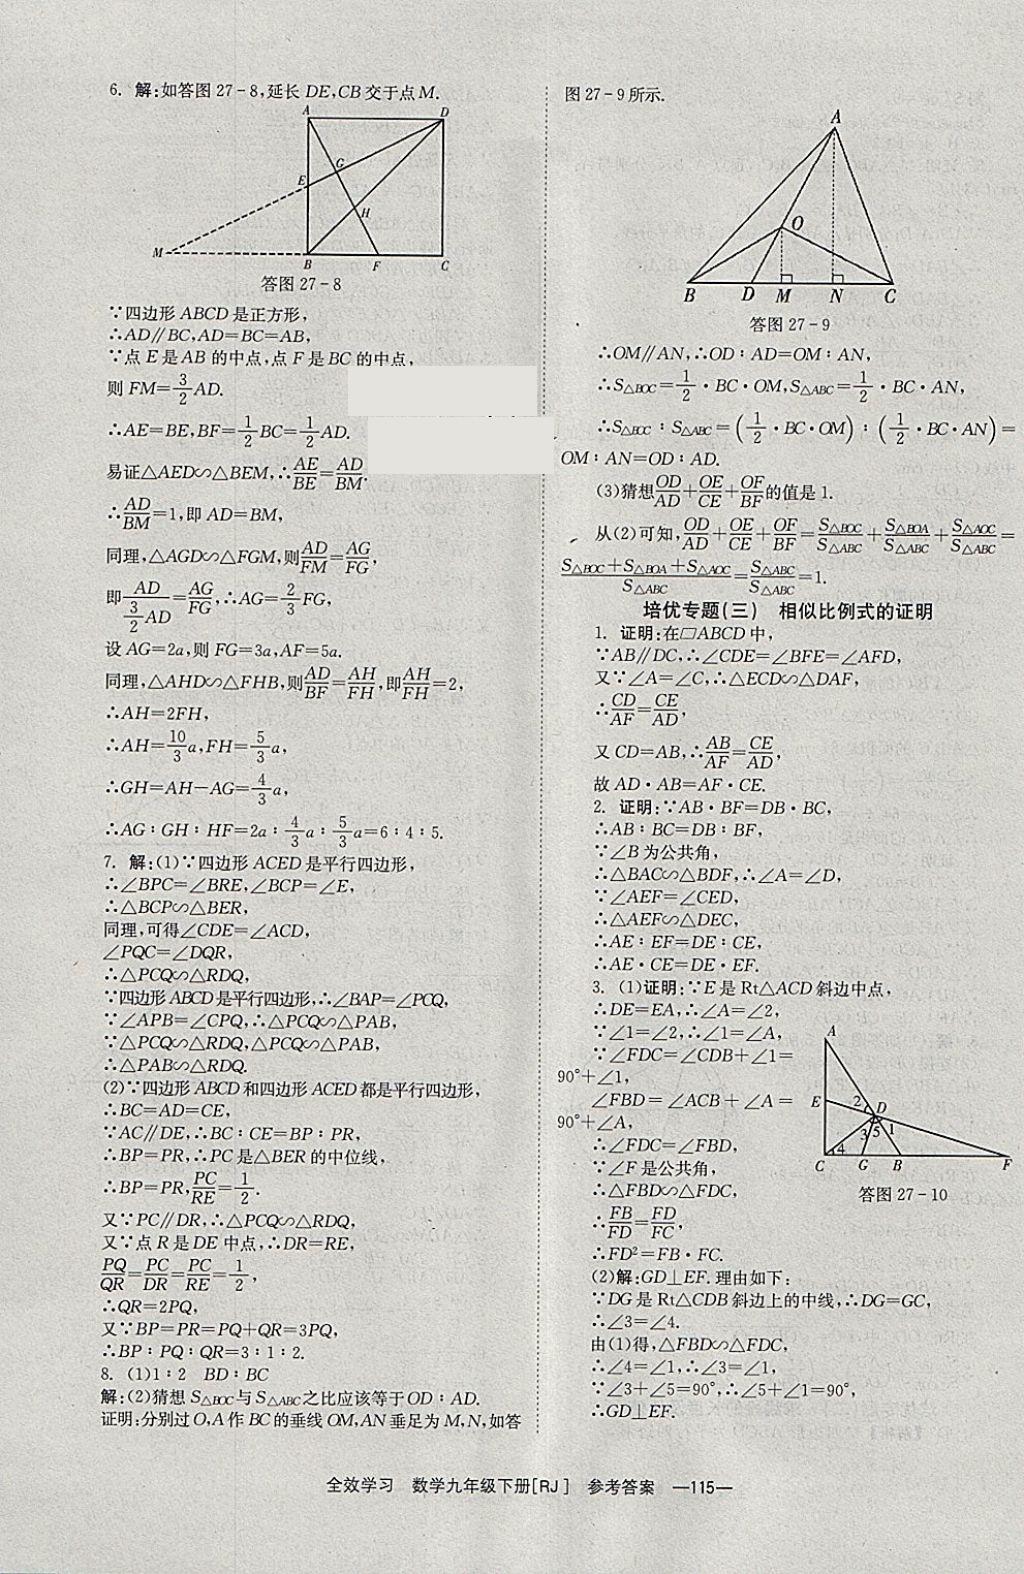 6. 解:如答图 27-8,延长 DE,CB 交于点 M.
A D G E H M B F C
答图 27-8
∵四边形 ABCD 是正方形,
∴AD∥BC,AD=BC=AB,
∵点 E 是 AB 的中点,点 F 是 BC 的中点,
则 FM=3/2 AD.
∴AE=BE,BF=1/2 BC=1/2 AD.
易证△AED∽△BEM,∴AE/BE=AD/BM.
∴AD/BM=1,即 AD=BM,
同理,△AGD∽△FGM,则AD/FM=AG/FG,
即AD/(3/2 AD)=AG/FG,∴AG=2/3 FG,
设 AG=2a,则 FG=3a,AF=5a.
同理,△AHD∽△FHB,则AD/BF=AH/FH,即AH/FH=2,
∴AH=2FH,
∴AH=10/3 a,FH=5/3 a,
∴GH=AH-AG=4/3 a,
∴AG∶GH∶HF=2a∶4/3 a∶5/3 a=6∶4∶5.
7. 解:(1)∵四边形 ACED 是平行四边形,
∴∠BPC=∠BRE,∠BCP=∠E,
∴△BCP∽△BER,
同理,可得∠CDE=∠ACD,
∠PQC=∠DQR,
∴△PCQ∽△RDQ,
∵四边形 ABCD 是平行四边形,∴∠BAP=∠PCQ,
∵∠APB=∠CPQ,∴△PCQ∽△PAB,
∵△PCQ∽△RDQ,△PCQ∽△PAB,
∴△PAB∽△RDQ.
(2)∵四边形 ABCD 和四边形 ACED 都是平行四边形,
∴BC=AD=CE,
∵AC∥DE,∴BC∶CE=BP∶PR,
∴BP=PR,∴PC 是△BER 的中位线,
∴BP=PR,PC/RE=1/2.
又∵PC∥DR,∴△PCQ∽△RDQ,
又∵点 R 是 DE 中点,∴DR=RE,
PQ/QR=PC/DR=PC/RE=1/2,
∴QR=2PQ,
又∵BP=PR=PQ+QR=3PQ,
∴BP∶PQ∶QR=3∶1∶2.
8. (1)1∶2 BD∶BC
解:(2)猜想 S△BOC与 S△ABC之比应该等于 OD∶AD.
证明:分别过 O,A 作 BC 的垂线 OM,AN 垂足为 M,N,如答
图 27-9 所示.
A O B D M N C
答图 27-9
∴OM∥AN,∴OD∶AD=OM∶AN,
∴S△BOC=1/2·BC·OM,S△ABC=1/2·BC·AN,
∴S△BOC∶S△ABC=(1/2·BC·OM)∶(1/2·BC·AN)=
OM∶AN=OD∶AD.
(3)猜想OD/AD+OE/CE+OF/BF的值是 1.
从(2)可知,OD/AD+OE/CE+OF/BF=S△BOC/S△ABC+S△BOA/S△ABC+S△AOC/S△ABC=
(S△BOC+S△BOA+S△AOC)/S△ABC=S△ABC/S△ABC=1.
培优专题(三) 相似比例式的证明
1. 证明:在▱ABCD 中,
∵AB∥DC,∴∠CDE=∠BFE=∠AFD,
又∵∠A=∠C,∴△ECD∽△DAF,
∴CD/AF=CE/AD,
又 CD=AB,∴AB/AF=CE/AD,
故 AD·AB=AF·CE.
2. 证明:∵AB·BF=DB·BC,
∴AB∶BC=DB∶BF,
∵∠B 为公共角,
∴△BAC∽△BDF,∴∠A=∠D,
∵∠AEF=∠CED,
∴△AEF∽△DEC,
∴AE∶EF=DE∶CE,
∴AE·CE=DE·EF.
3. (1)证明:∵E 是 Rt△ACD 斜边中点,
∴DE=EA,∴∠A=∠2,
∵∠1=∠2,∴∠1=∠A,
∵∠FDC=∠CDB+∠1=
90°+∠1,
∠FBD=∠ACB+∠A=
90°+∠A,
∴∠FDC=∠FBD,
∵∠F 是公共角,
∴△FBD∽△FDC,
∴FB/FD=FD/FC,
∴FD²=FB·FC.
A E 2 D 3 5 1 4 C G B F
答图 27-10
(2)解:GD⊥EF.理由如下:
∵DG 是 Rt△CDB 斜边上的中线,∴DG=GC,
∴∠3=∠4.
由(1)得,△FBD∽△FDC,
∴∠4=∠1,∴∠3=∠1,
∵∠3+∠5=90°,∴∠5+∠1=90°,
∴GD⊥EF.
全效学习 数学九年级下册[RJ] 参考答案 —115—